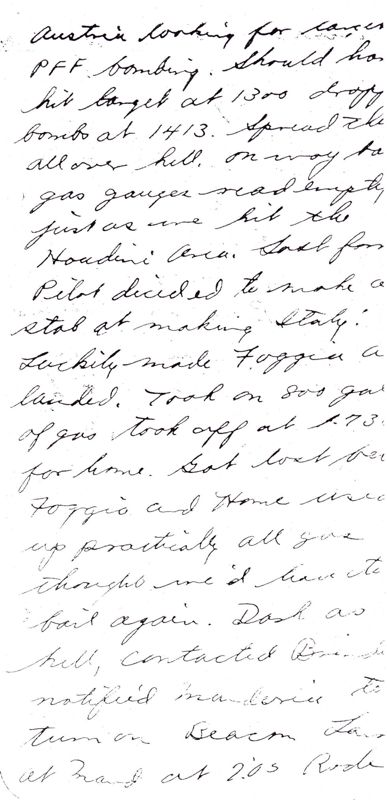 Austria looking for
PFF bombing. Should ha
hit target at 1300 dropp
bombs at 1413. Spread the
all over hell. on way ba
gas gauges read empty
just as we hit the
Houdini Area. Last
Pilot decided to make a
stab at making Italy.
Luckily made Foggia a
landed. Took on 800 ga
of gas took off at 173
for home. Got lost be
Foggia and Home use
up practically all gas
thought we'd have to
bail again. Dark as
hell, contacted
notified to
turn on Beacon
at at 2:05 Rode